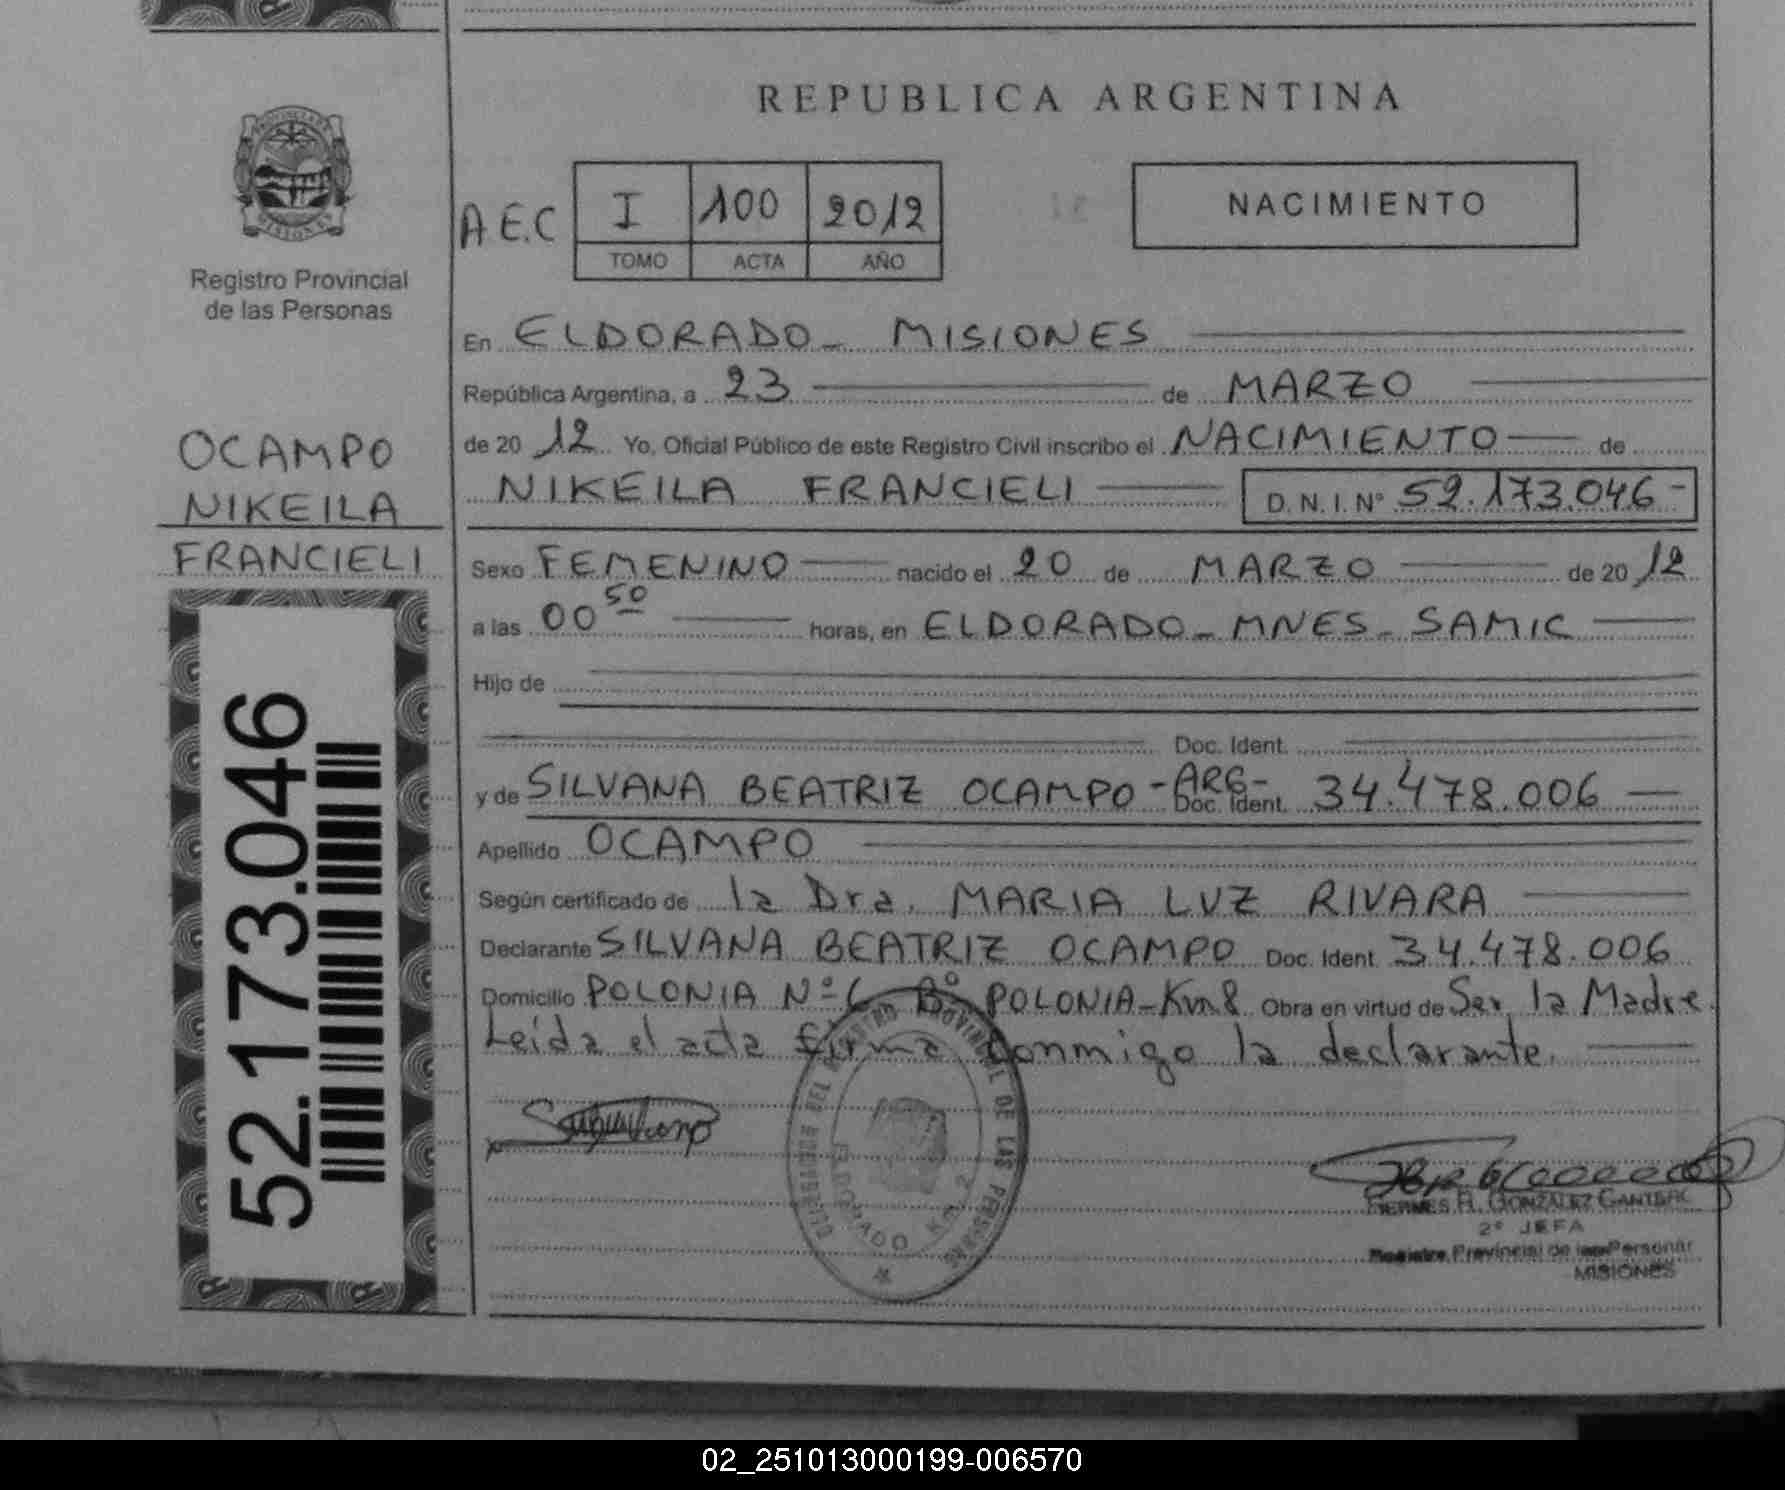 REPUBLICA ARGENTINA
PROVINCIA DE MISIONES
Registro Provincial
de las Personas
A.E.C I 100 2012
TOMO ACTA AÑO
NACIMIENTO
OCAMPO
NIKEILA
FRANCIELI
52.173.046
En ELDORADO - MISIONES
República Argentina, a 23 de MARZO
de 2012 Yo, Oficial Público de este Registro Civil inscribo el NACIMIENTO de
NIKEILA FRANCIELI D. N. I. Nº 52.173.046-
Sexo FEMENINO nacido el 20 de MARZO de 2012
a las 00 50 horas, en ELDORADO - MNES - SAMIC
Hijo de
Doc. Ident.
y de SILVANA BEATRIZ OCAMPO - ARG - Doc. Ident. 34.478.006
Apellido OCAMPO
Según certificado de la Dra. MARIA LUZ RIVARA
Declarante SILVANA BEATRIZ OCAMPO Doc. Ident. 34.478.006
Domicilio POLONIA Nº 6 Bº POLONIA - Km 8 Obra en virtud de Ser la Madre.
Leída el acta firma conmigo la declarante.
REGISTRO PROVINCIAL DE LAS PERSONAS
ELDORADO KM. 2
GONZALEZ
2º JEFA
Registro Provincial de las Personas
MISIONES
02_251013000199-006570